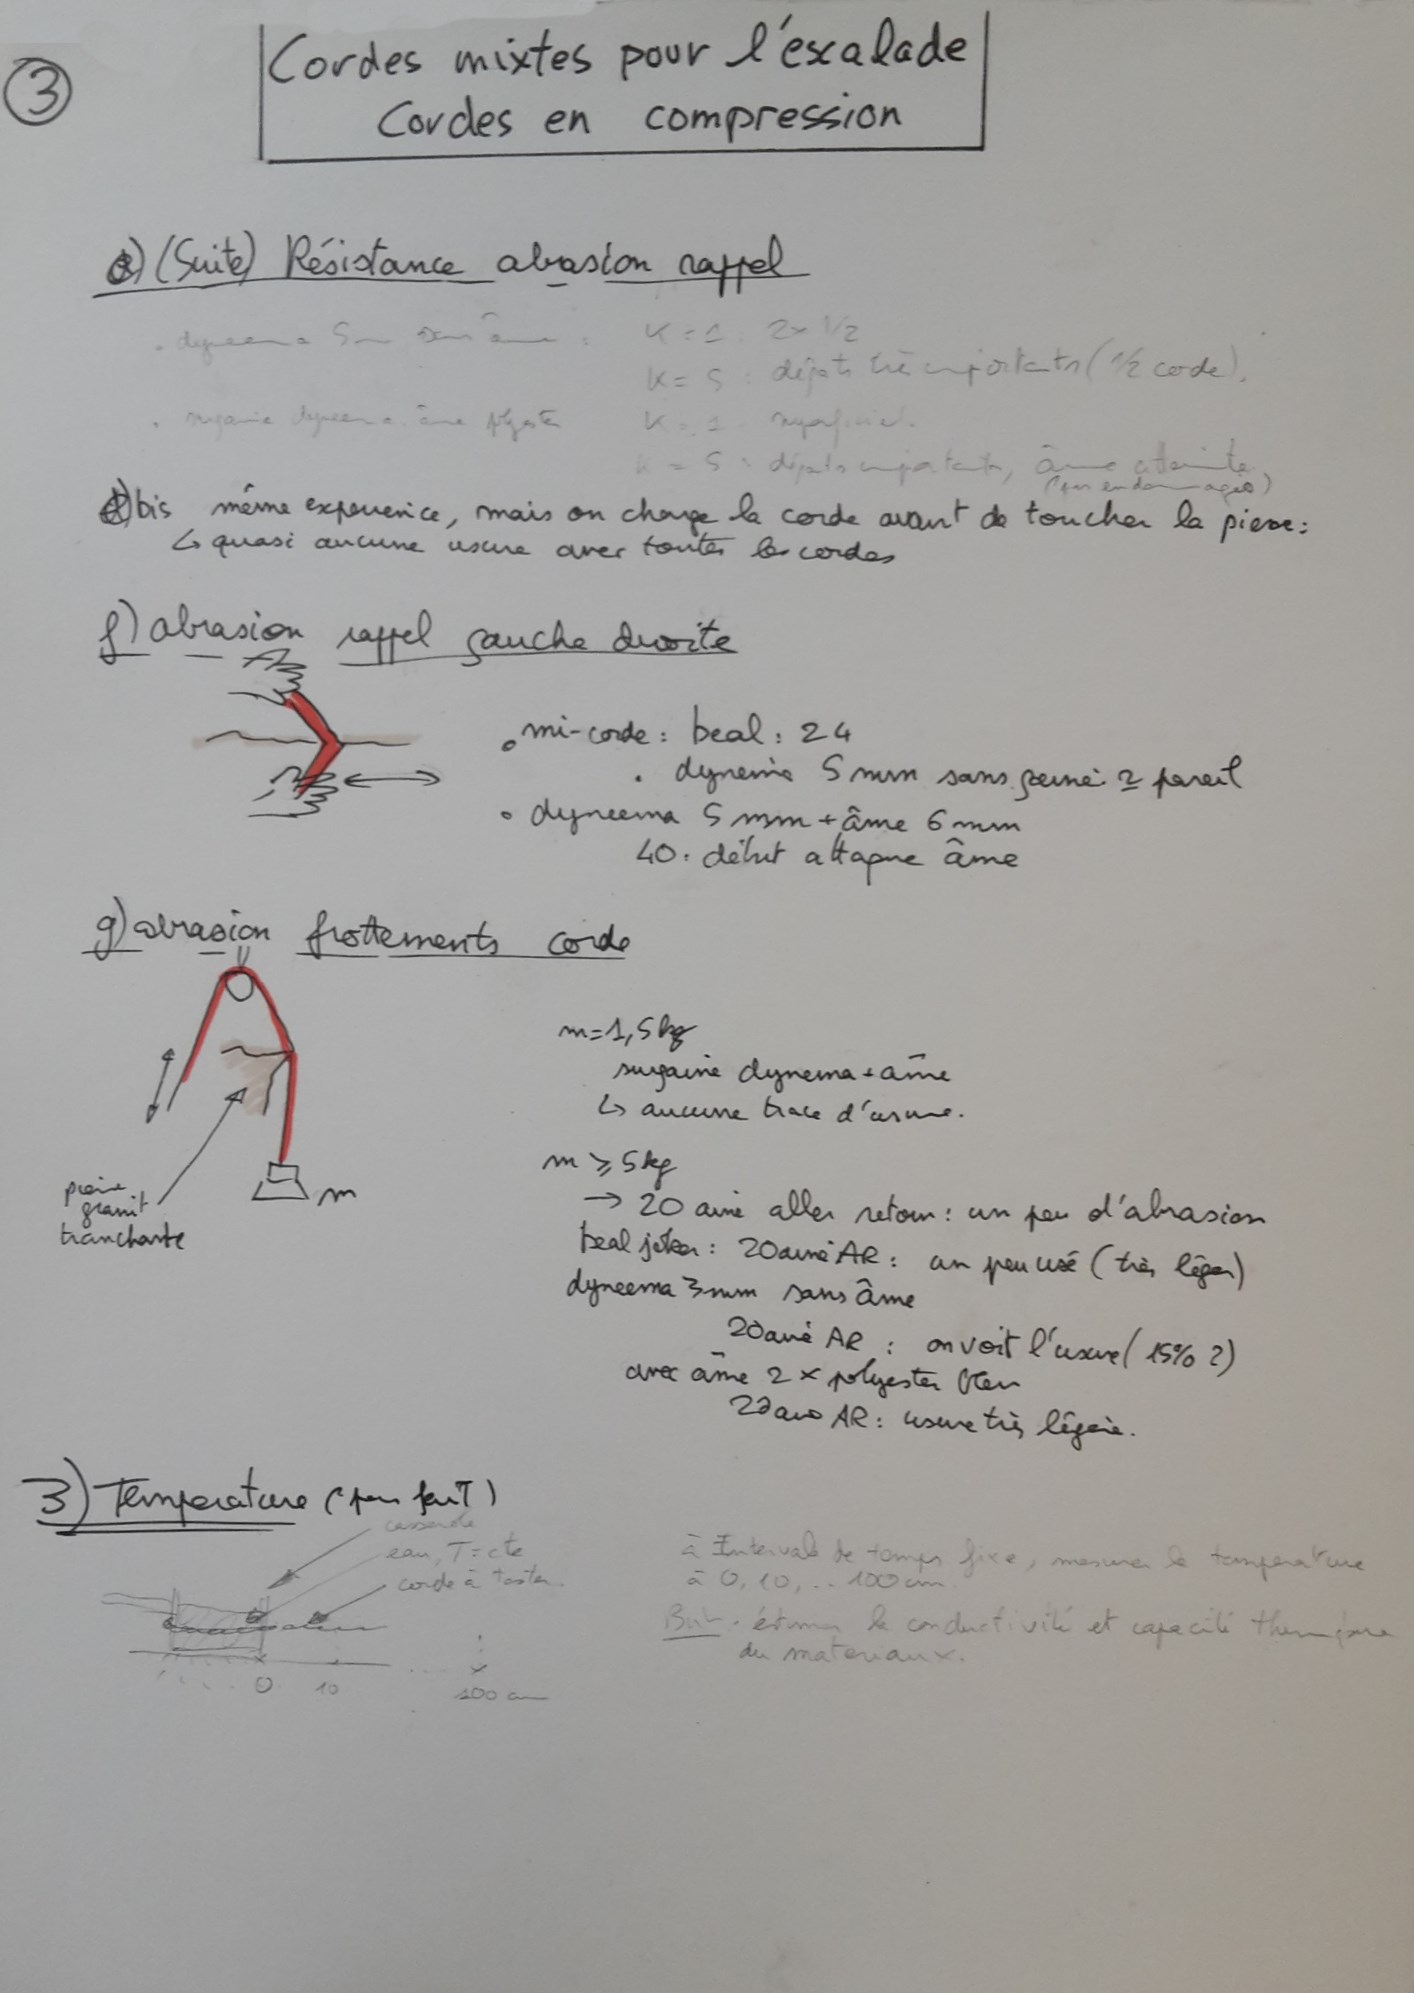 3
Cordes mixtes pour l'escalade
Cordes en compression
e) (Suite) Résistance abrasion rappel
. dyneema 5mm sans âme : K=1 : 2x 1/2
K=5 : dégats très importants (1/2 corde).
. dyneema âme polyester K=1 superficiel.
K=5 : dégats importants, âme atteinte
(pas endommagée)
bis même experience, mais on charge la corde avant de toucher la pierre :
↳ quasi aucune usure avec toutes les cordes
f) abrasion rappel gauche droite
• mi-corde : beal : 24
. dynema 5 mm sans gaine ≃ pareil
• dyneema 5 mm + âme 6 mm
40. début attaque âme
g) abrasion frottements corde
m=1,5kg
dynema + âme
↳ aucune trace d'usure.
pierre
granit
tranchante
m
m ≥ 5kg
→ 20 aller retour : un peu d'abrasion
beal joker : 20 AR : un peu usé (très léger)
dyneema 3mm sans âme
20 AR : on voit l'usure (15% ?)
avec âme 2 x polyester
20 AR : usure très légère.
3) Temperature (pas fait)
casserole
eau, T=cte
corde à tester.
0 10 .... 100 cm
à Intervals de temps fixe, mesurer la temperature
à 0, 10, .. 100cm.
But : estimer la conductivité et capacité thermique
du materiaux.